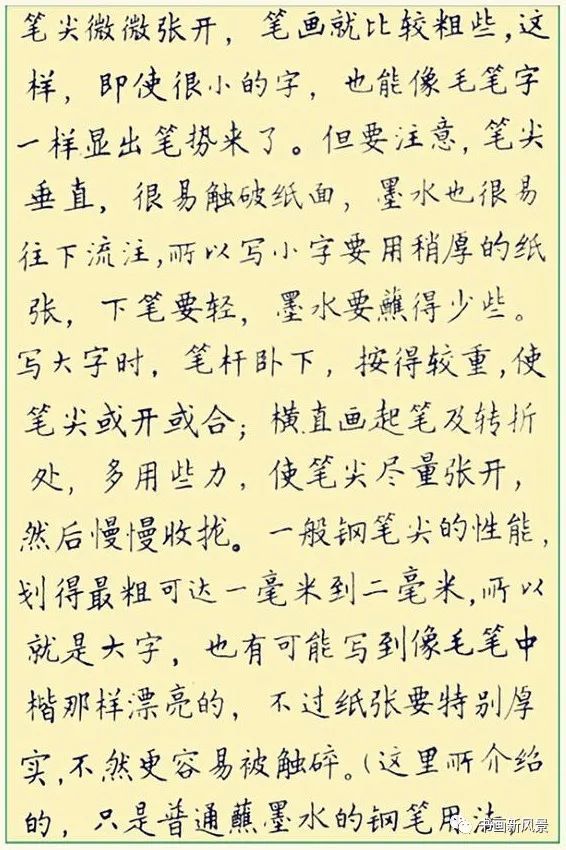 笔尖微微张开，笔画就比较粗些，这
样，即使很小的字，也能像毛笔字
一样显出笔势来了。但要注意，笔尖
垂直，很易触破纸面，墨水也很易
往下流注，所以写小字要用稍厚的纸
张，下笔要轻，墨水要蘸得少些。
写大字时，笔杆卧下，按得较重，使
笔尖或开或合；横直画起笔及转折
处，多用些力，使笔尖尽量张开，
然后慢慢收拢。一般钢笔尖的性能，
划得最粗可达一毫米到二毫米，所以
就是大字，也有可能写到像毛笔中
楷那样漂亮的，不过纸张要特别厚
实，不然更容易被触碎。（这里所介绍
的，只是普通蘸墨水的钢笔用法，
书画新风景